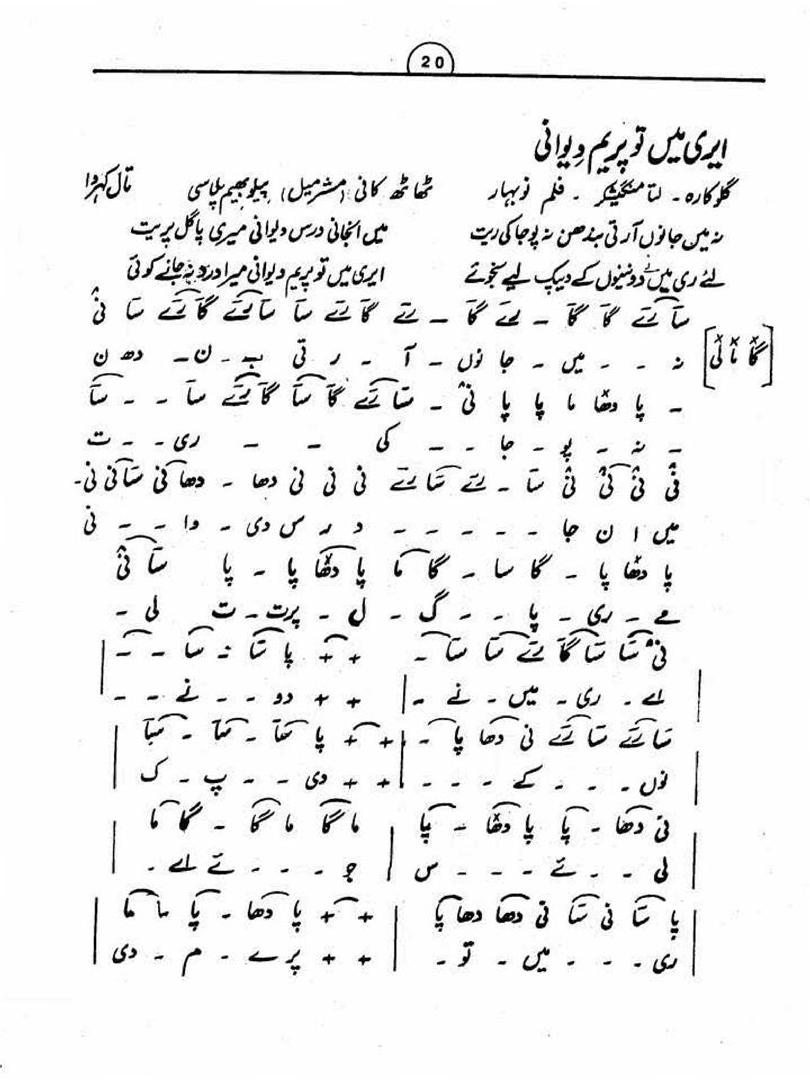 20
ایری میں تو پریم دیوانی
گلوکارہ۔ لتا منگیشکر ۔ فلم نوبہار ٹھاٹھ کافی (مشرمیل) پیلو بھیم پلاسی تال کہروا
نہ میں جانوں آرتی بندھن نہ پوجا کی ریت میں انجانی درس دیوانی میری پاگل پریت
لئے ری میں نے دو نینوں کے دیپک لیے سنجوئے ایری میں تو پریم دیوانی میرا درد نہ جانے کوئی
سا رے گا گا - رے گا - رے گا رے سا سا رے گا رے سا نی
[گا ما نی] نہ - - میں - جا نوں - آ - ر تی بے - ن - دھ ن
- پا دھا ما پا پا نی - سا رے گا سا گا رے سا - - سا
- نہ - پو - جا - - کی - - ری - - ت
نی نی نی نی سا - رے سا رے نی نی نی دھا - دھا نی سا نی نی -
میں ا ن جا - - - - - د ر س دی - وا - - نی
پا دھا پا - گا سا - گا ما پا دھا پا - پا سا نی
مے - ری - پا - - گ - ل - پرت - ت لی -
نی سا سا گا رے سا سا - + + پا سا نہ سا - -
اے - ری - میں - نے - + + دو - - نے - -
سا رے سا رے نی دھا پا - + + پا
نوں - - - کے - - - + + دی - - پ - ک
نی دھا - پا پا دھا - پا ما گا ما گا - گا ما
لی - - ئے - - - س جو - - - ئے اے -
پا سا نی سا نی دھا دھا پا + + پا دھا - پا ما ما
ری - - - میں - تو - + + پرے - م - دی